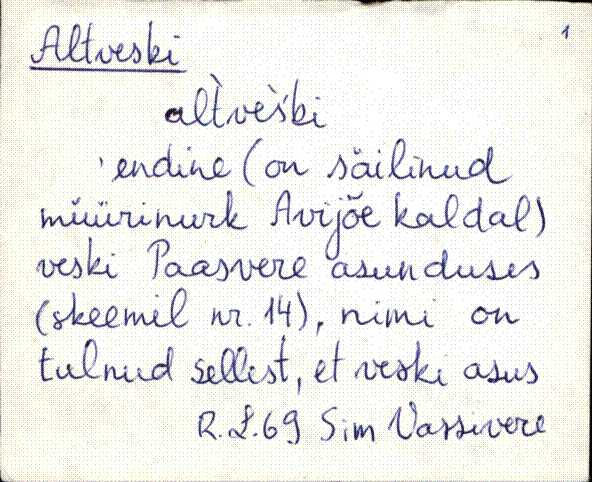 Altveski 1
al̀tvès̀ki
'endine (on säilinud
müürinurk Avijõe kaldal)
veski Paasvere asunduses
(skeemil nr. 14), nimi on
tulnud sellest, et veski asus
R. L. 69 Sim Vassivere